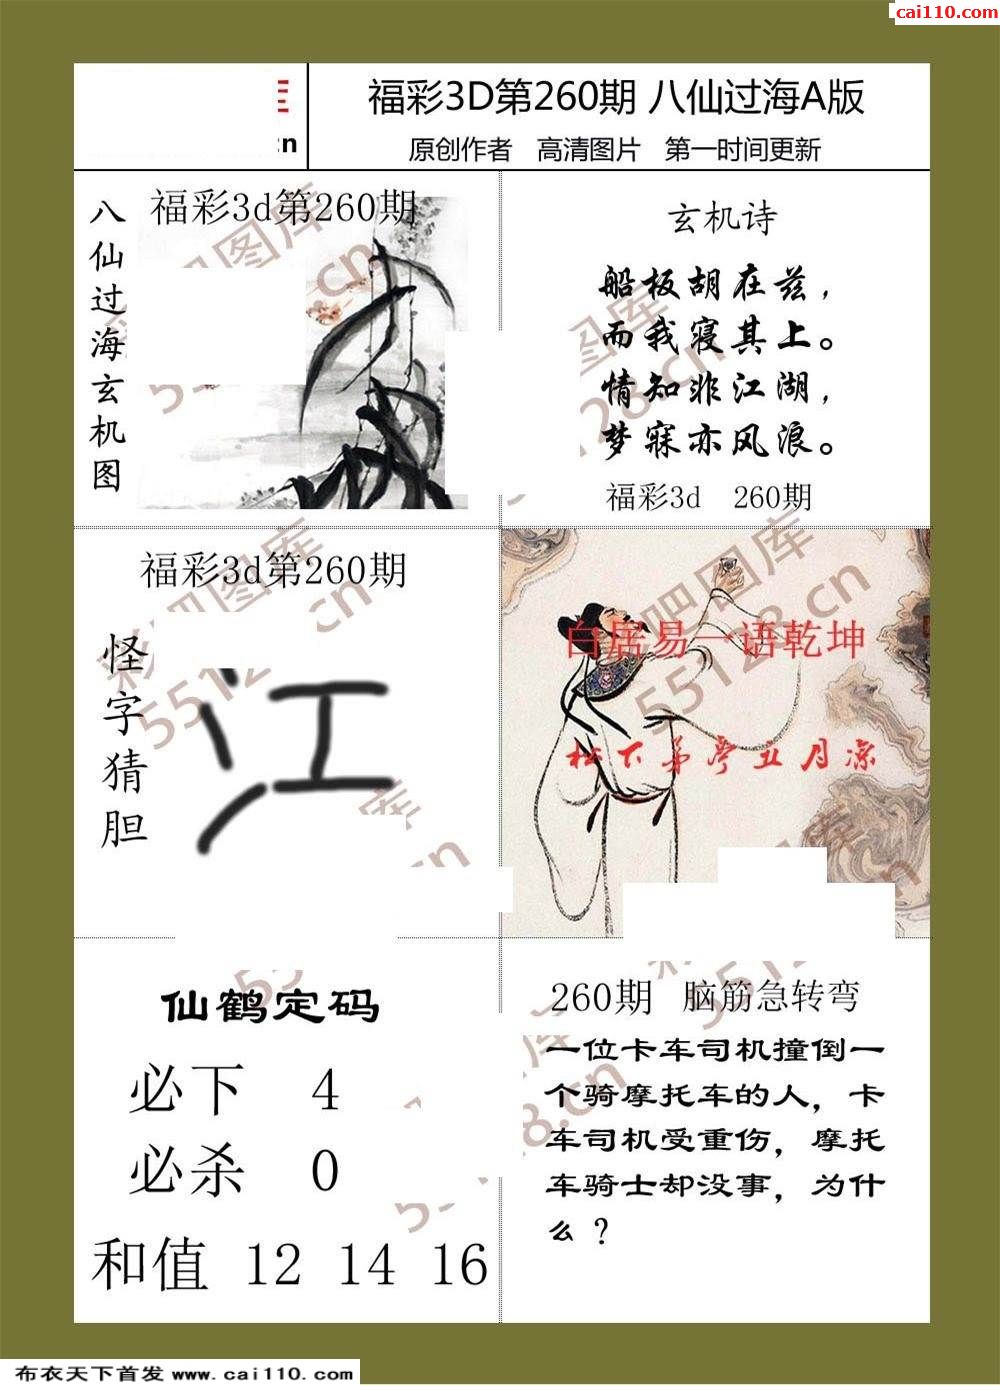 cai110.com
福彩3D第260期 八仙过海A版
原创作者 高清图片 第一时间更新
八仙过海玄机图
福彩3d第260期
玄机诗
船板胡在兹，
而我寝其上。
情知非江湖，
梦寐亦风浪。
福彩3d 260期
福彩3d第260期
怪字猜胆
江
白居易一语乾坤
松下茅亭五月凉
仙鹤定码
必下 4
必杀 0
和值 12 14 16
260期 脑筋急转弯
一位卡车司机撞倒一
个骑摩托车的人，卡
车司机受重伤，摩托
车骑士却没事，为什
么？
布衣天下首发 www.cai110.com